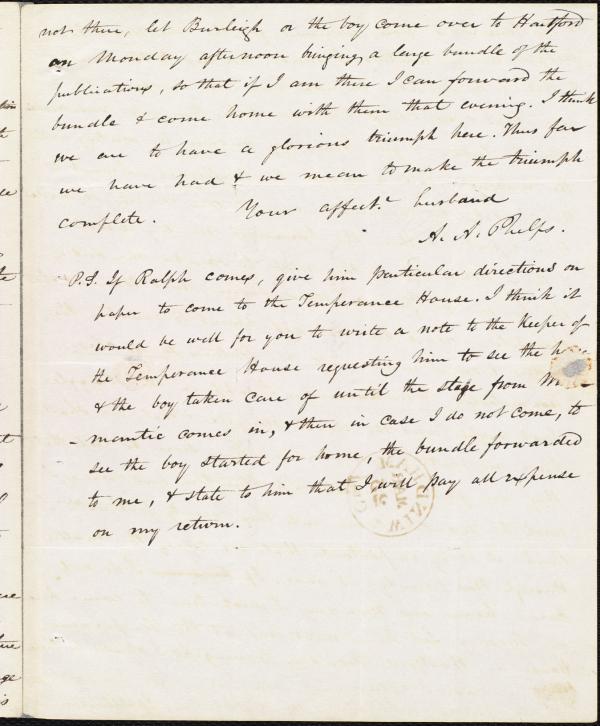 not there, let Burleigh or the boy come over to Hartford
on Monday afternoon bringing a large bundle of the
publications, so that if I am there I can forward the
bundle & come home with them that evening. I think
we are to have a glorious triumph here. Thus far
we have had & we mean to make the triumph
complete. Your affect. husband
A. A. Phelps.
P.S. If Ralph comes, give him particular directions on
paper to come to the Temperance House. I think it
would be well for you to write a note to the Keeper of
the Temperance House requesting him to see the
& the boy taken care of until the stage from
mantic comes in, & then in case I do not come, to
see the boy started for home, the bundle forwarded
to me, & state to him that I will pay all expense
on my return.